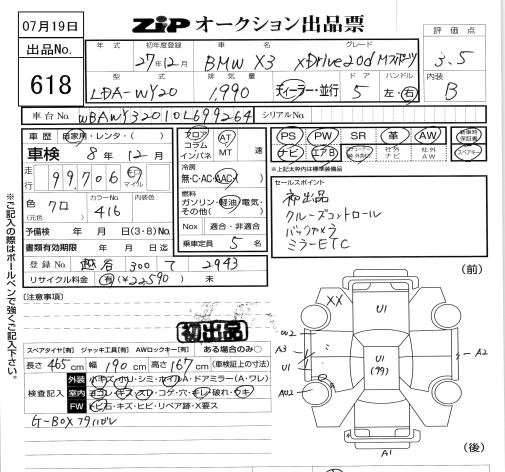 07月19日
ZIP オークション出品票
評価点
出品No.
618
年式 初年度登録 車名 グレード
27年12月 BMW X3 xDrive20d Mスポーツ
3.5
型式 排気量 ドア ハンドル
LDA-WY20 1,990 ディーラー・並行 5 左・右
内装
B
車台No. WBAWY32010L699264 シリアルNo.
車歴 自家用・レンタ・( )
車検 8年12月
走行 99,706 km マイル
色 クロ (元色) カラーNo 416 内装色
予備検 年 月 日(3・8)No.
書類有効期限 年 月 日迄
登録No. 越谷 300 て 2943
リサイクル料金 有(¥22,590) 未
フロア コラム インパネ AT MT 速
冷房 無・C・AC・AAC
燃料 ガソリン・軽油・電気・その他( )
Nox 適合・非適合
乗車定員 5 名
PS PW SR 革 AW 新車時保証書
ナビ エアB 社外ナビ 社外AW スペアキー
※上記太枠内は標準装備品
セールスポイント
初出品
クルーズコントロール
バックカメラ
ミラーETC
※ご記入の際はボールペンで強くご記入下さい。
(注意事項)
初出品
スペアタイヤ[有] ジャッキ工具[有] AWロックキー[有] ある場合のみ○
長さ 465 cm 幅 190 cm 高さ 167 cm (車検証上の寸法)
検査記入
外装 小キズ・ホリ・シミ・ホイルA・ドアミラー(A・ワレ)
室内 ヨゴレ・キズ・スレ・コゲ・穴・キレ・破れ・ウキ
FW トビ石・キズ・ヒビ・リペア跡・X要ス
G-BOXフタハガレ
(前)
XX
U1
W2
A3
U1
U1
(99)
A2
A02
A1
(後)